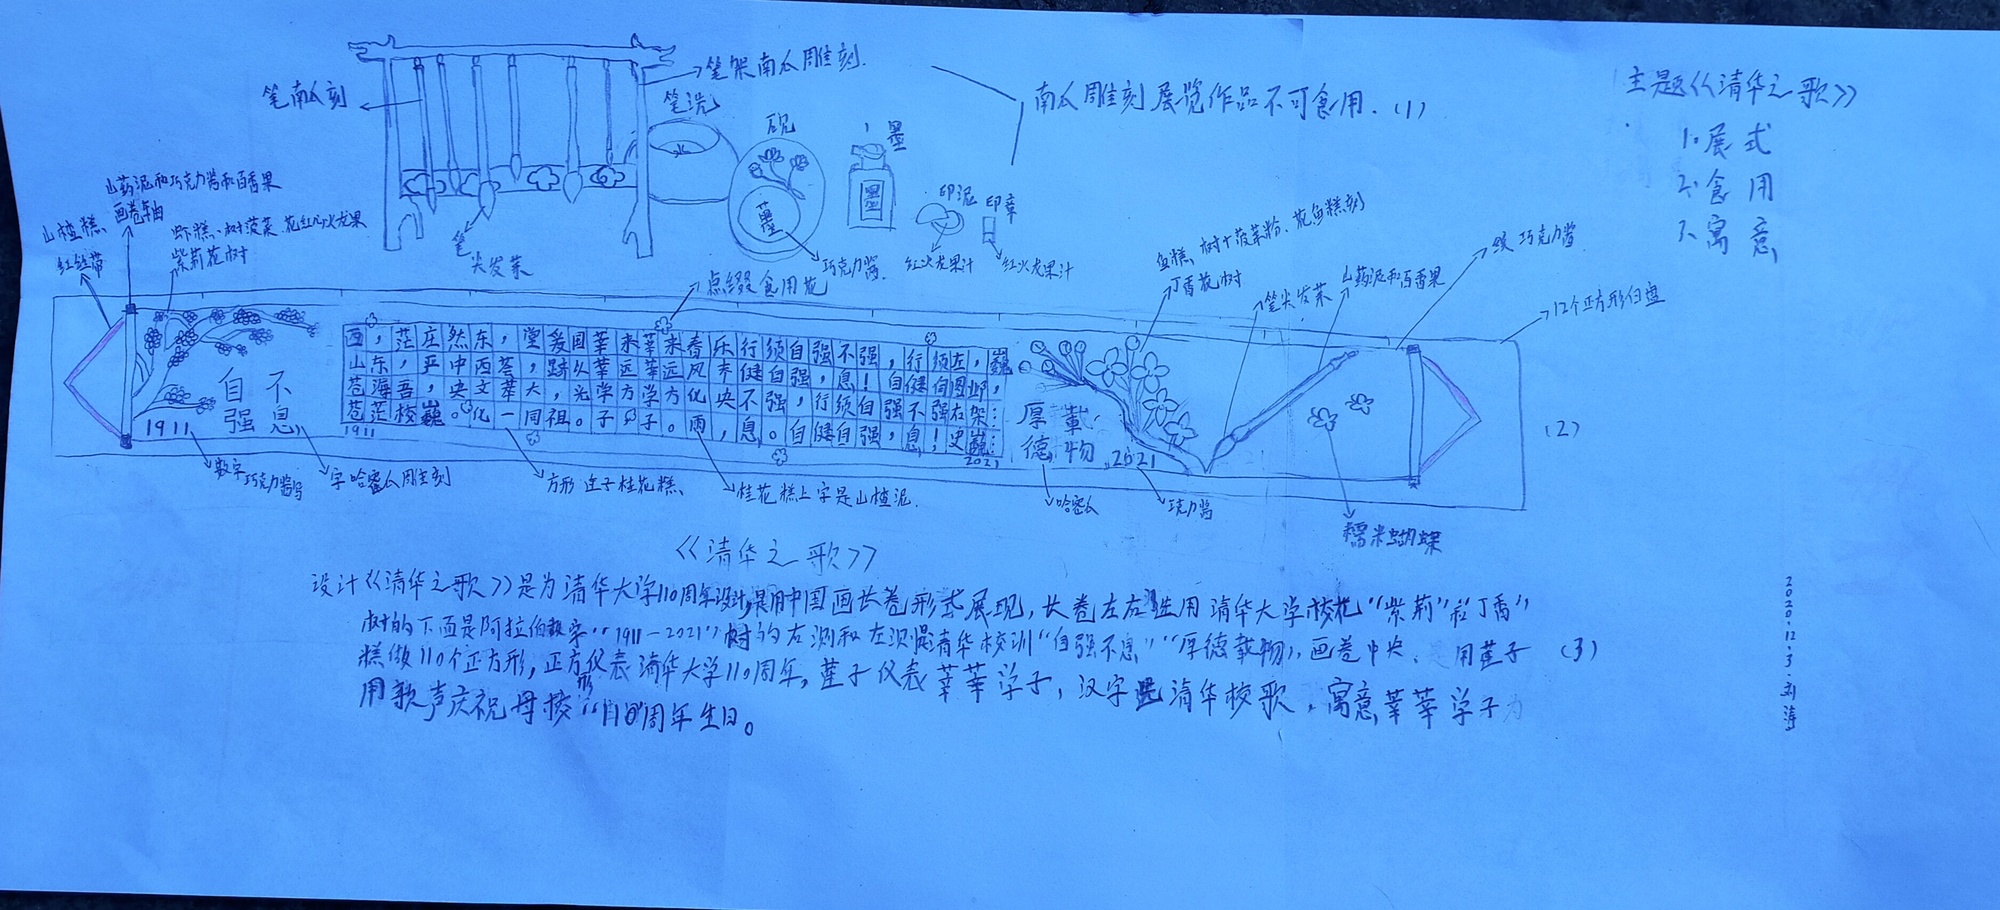 笔南瓜刻
笔架南瓜雕刻.
笔洗
砚
墨
墨
南瓜雕刻展览作品不可食用.(1)
主题《清华之歌》
1.展式
2.食用
3.寓意
印泥
印章
笔
尖发菜
巧克力酱.
红火龙果汁
红火龙果汁
山药泥和巧克力酱和百香果
画卷轴
山楂糕、
红丝带
虾糕、树菠菜.花红心火龙果
紫荆花树
点缀食用花
鱼糕、树干菠菜粉、花鱼糕刻
丁香花树
笔尖发菜
山药泥和百香果
巧克力酱
12个正方形白盘
自不
强息
1911
西,茫庄然东,堂爰国莘来莘来春乐行须自强不强,行须左,巍
山东,严中西荟,跻久莘远莘远风 健自强,息!自健自图邺,
苍海吾,央文莘大,光学方学方化央不强,行须自强不强右架:
苍茫校巍。化一同祖。子 子。雨,息。自健自强,息!史巍:
1911
2021
厚载
德物
2021
(2)
数字
巧克力酱写
字哈密瓜雕刻
方形莲子桂花糕、
桂花糕上字是山楂泥.
哈密瓜
巧克力酱
糯米蝴蝶
《清华之歌》
设计《清华之歌》是为清华大学110周年设计,是用中国画长卷形式展现,长卷左右 用清华大学校花“紫荆”和“丁香”
树的下面是阿拉伯数字“1911-2021”树的右测和左测是清华校训“自强不息”“厚德载物”,画卷中央、是用莲子
糕做110个正方形,正方形仪表清华大学110周年,莲子仪表莘莘学子,汉字是清华校歌,寓意莘莘学子为
用歌声庆祝母校“110”周年生日。
(3)
2020.12.3.刘涛